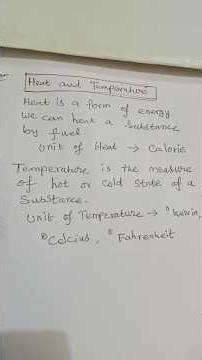 Heat and Temperature
Heat is a form of energy
we can heat a Substance
by fuel.
Unit of Heat → Calorie
Temperature is the measure
of hot or cold State of a
Substance.
Unit of Temperature → °Kelvin,
°Celcius, °Fahrenheit